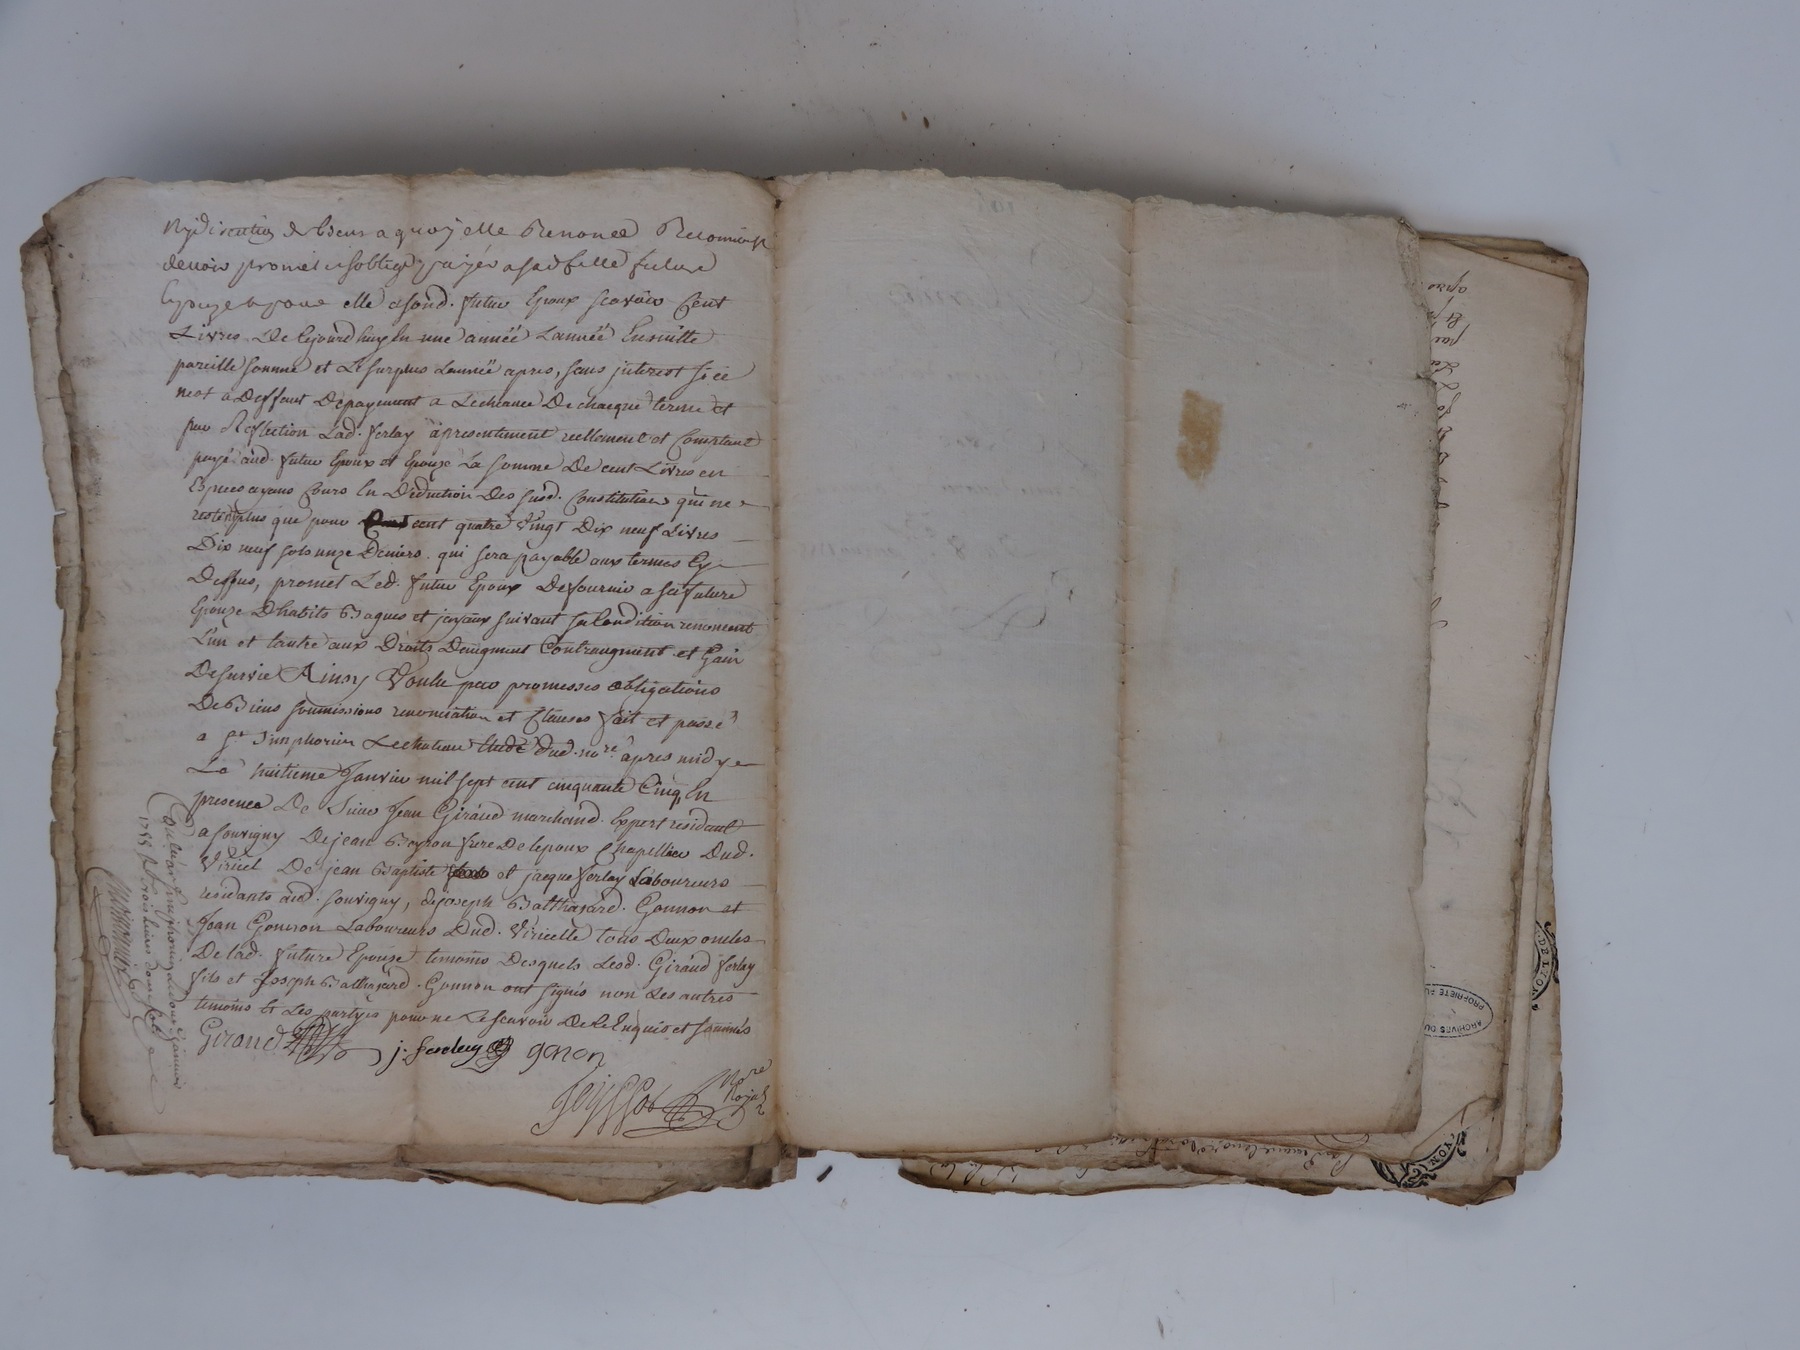 ny discution de biens a quoy elle Renonce
devoir promet et soblige payer a sad fille future
Epouze et pour elle asond. futur Epoux scavoir Cent
Livres De Cejourdhuy En une année Lannée Ensuitte
pareille somme et Le surplus Lannée apres, sans jnterest si ce
nest a Deffaut De payement a Lecheance De chacque terme et
par Lad. ferlay apresentiment reellement et Comptant
payé aud. futur Epoux et Epouze La somme De cent Livres en
Especes ayans Cours En Deduction Des susd. Constitutions qui ne
restent plus que pour cent quatre Vingt Dix neuf Livres
Dix neuf sols unze Deniers. qui sera payable aux termes Cy
Dessus, promet Led. futur Epoux De fournir a sa future
Epouze Dhabits Bagues et joyaux suivant sa Condition renoncent
L'un et lautre aux Droits Daugment Contraugment et Gain
De survie Ainsy Voulu par promesses obligations
De Biens soumissions renonciation et Clauses fait et passé
a St Simphorien Lechateau Etude dud. nore. apres midy
Le huitieme Janvier mil sept cent cinquante Cinq, En
presence De Sieur Jean Giraud marchand. Expert residant
a souvigny De jean Boyron frere De lepoux Chapellier Dud.
Viricel De jean Baptiste et jacque ferlay Laboureurs
residants aud. souvigny, de joseph Balthazard. Gonnon et
Jean Gonnon Laboureurs Dud. Viricelle tous Deux oncles
De lad. future Epouze temoins Desquels Lesd. Giraud ferlay
fils et Joseph Balthazard. Gonnon ont signés non Les autres
temoins Et Les partyes pour ne Le scavoir De Ce Enquis et sommés
Giraud j: ferlay gonon
Nore
Royal
1755
ARCHIVES DU
PROPRIETE PU
DE LYON
YON